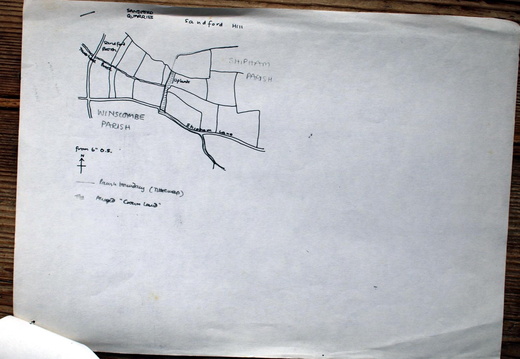 SANDFORD
QUARRIES
Sandford Hill
Sandford
Batch
SHIPHAM
PARISH
Uplands
WINSCOMBE
PARISH
Shipham Lane
from 6" O.S.
N
Parish boundary (Tithe map)
Alleged "Common Land"